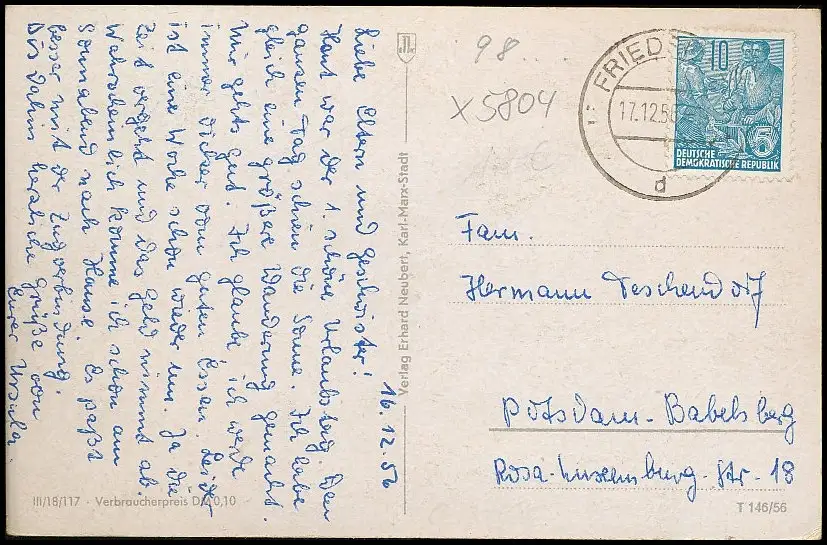 16.12.56
Liebe Eltern und Geschwister!
Heut war der 1. schöne Urlaubstag. Den
ganzen Tag schien die Sonne. Ich habe
gleich eine größere Wanderung gemacht.
Mir gehts gut. Ich glaube, ich werde
immer dicker vom guten Essen. Leider
ist eine Woche schon wieder um. Ja die
Zeit vergeht und das Geld nimmt ab.
Wahrscheinlich komme ich schon am
Sonnabend nach Hause. Es paßt
besser mit der Zugverbindung.
Bis dahin herzliche Grüße von
Eurer Ursula.
III/18/117 · Verbraucherpreis DM 0,10
Verlag Erhard Neubert, Karl-Marx-Stadt
98
X5804
FRIED
17.12.56
d
10
5
DEUTSCHE
DEMOKRATISCHE REPUBLIK
Fam.
Hermann Teschendorf
Potsdam-Babelsberg
Rosa-Luxemburg-Str. 18
T 146/56